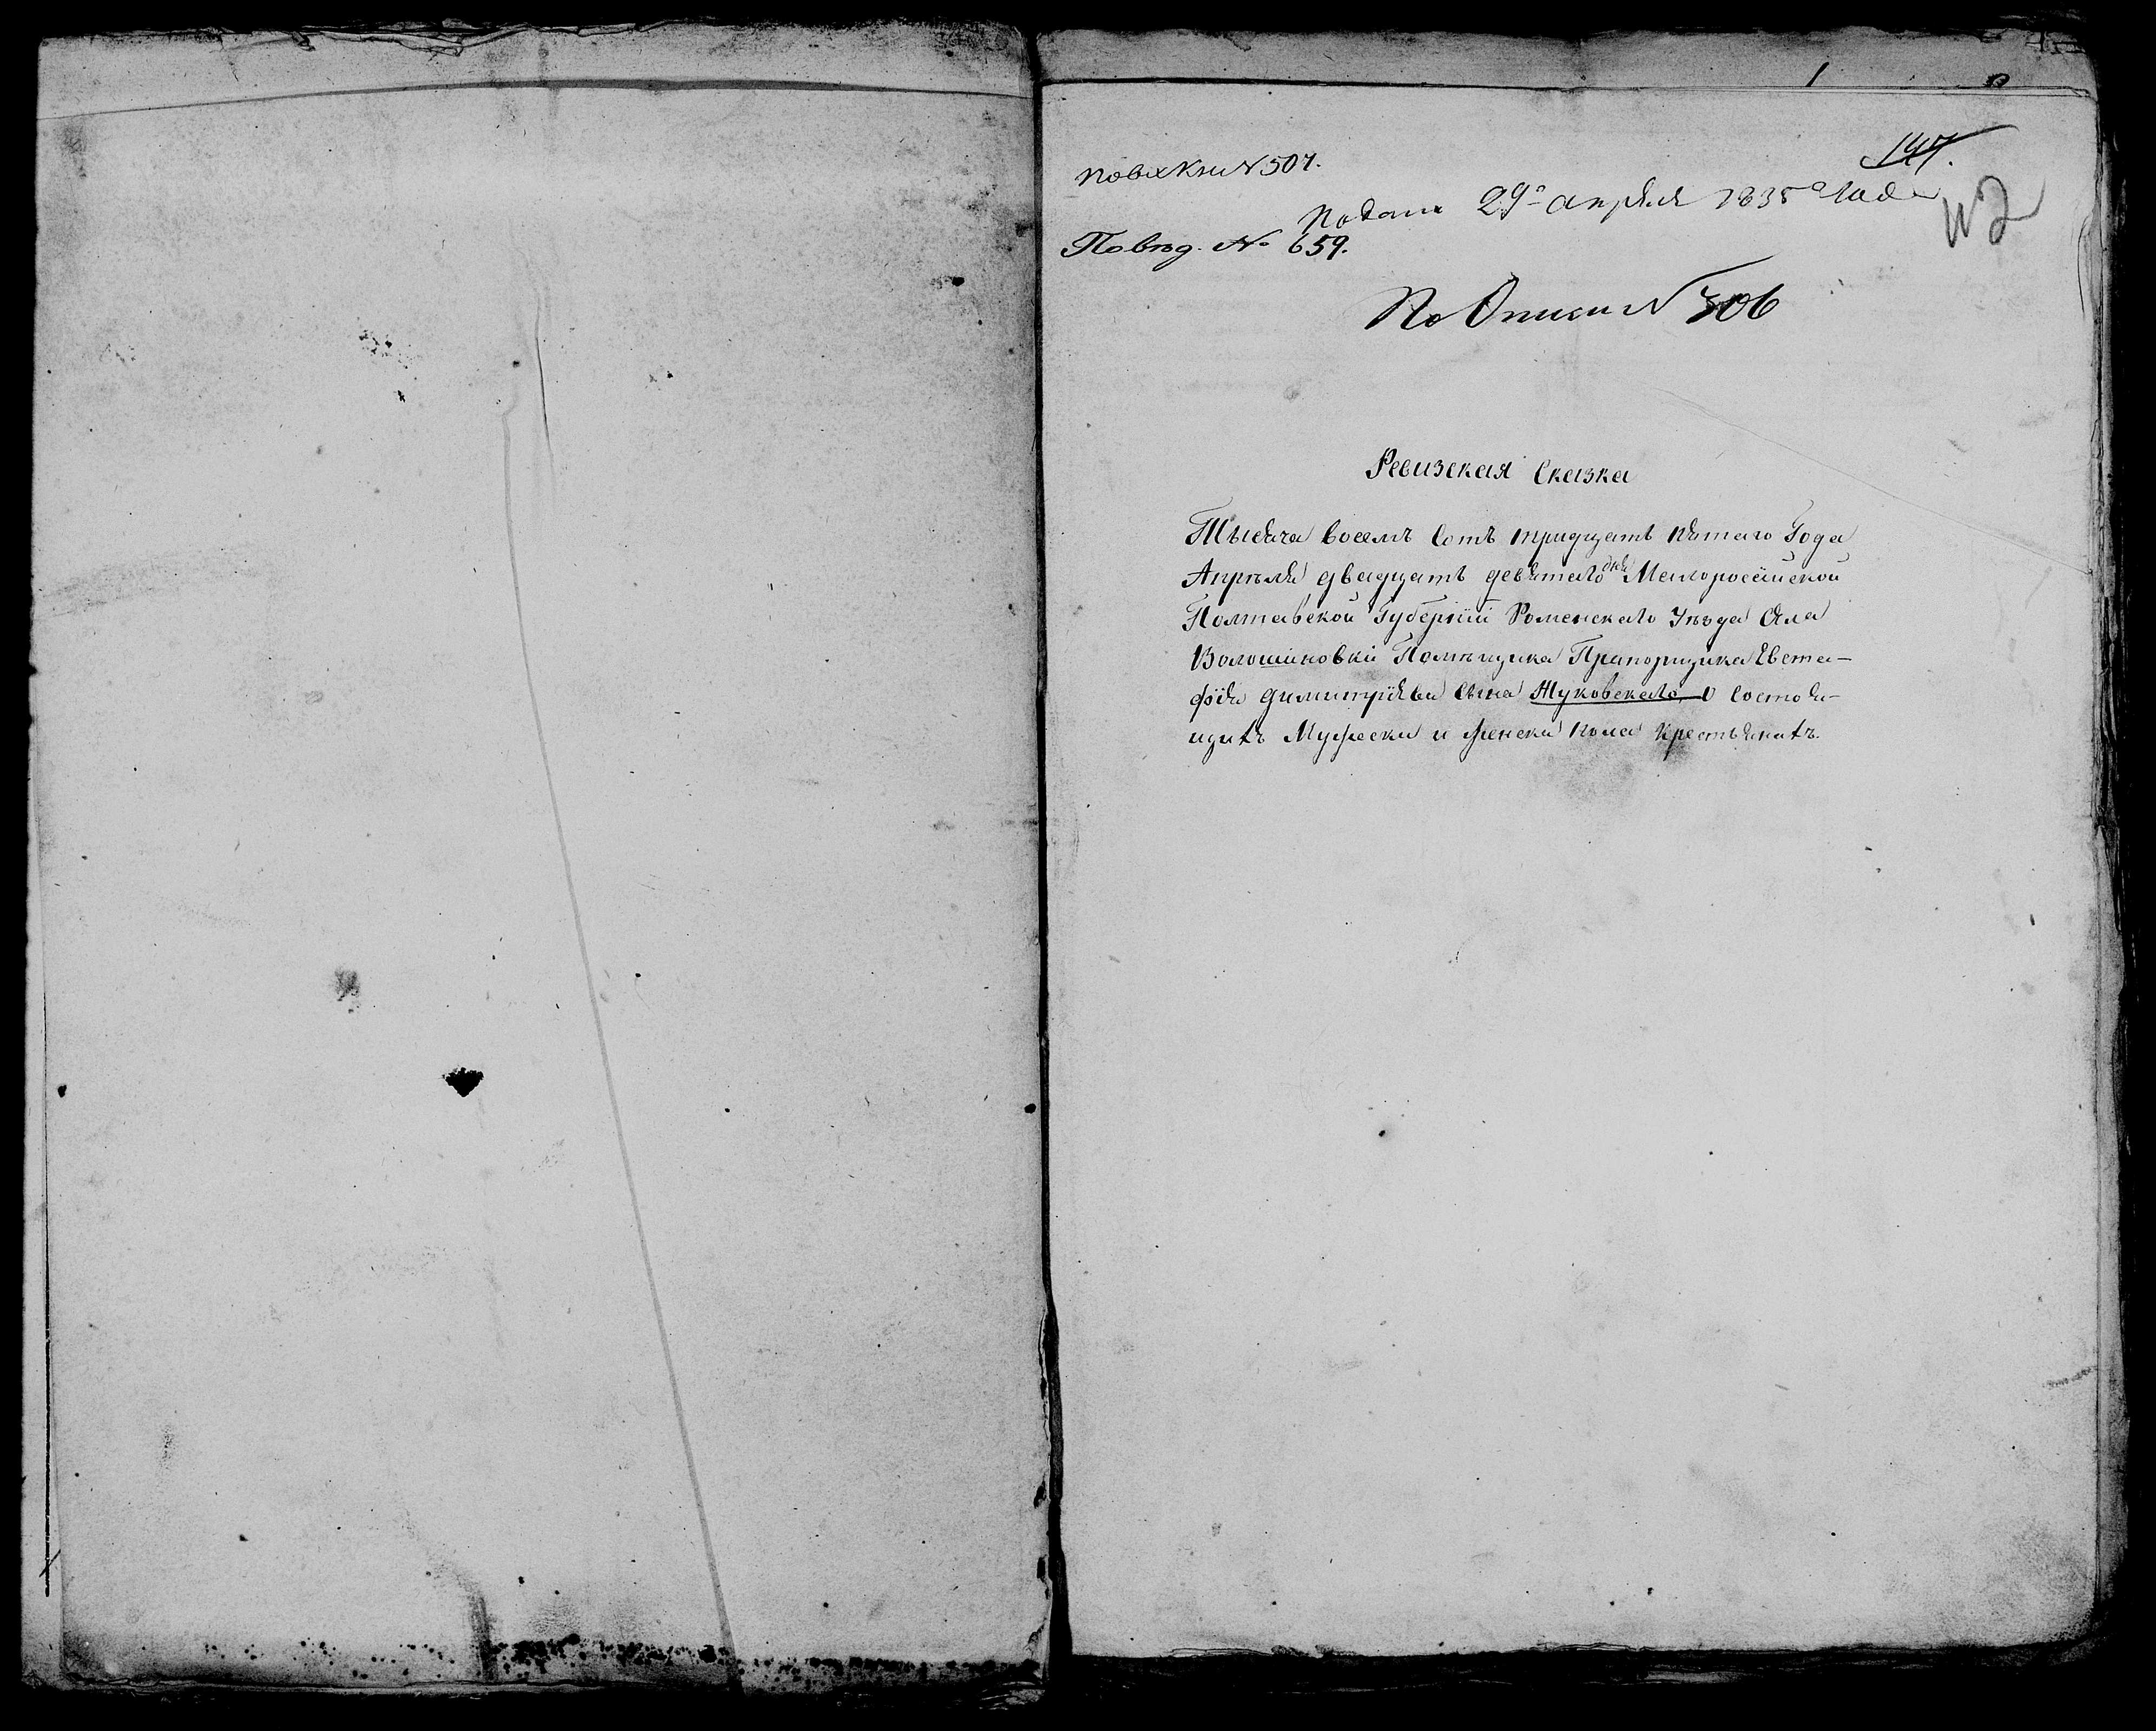 147.
По вх Кни N 507.
Подана 29го апреля 1835 года
По вѣд. № 659.
По Описи N 506
Ревизская Сказка
Тысяча восемъ Сотъ тридцать пятаго Года
Апрѣля двадцать девятаго дня Малоросійской
Полтавской Губерніи Роменскаго Уѣзда Села
Волошиновки Помѣщика Прапорщика Евста-
фія Димитріева Сына Жуковскаго, О Состоя-
щихъ Мужеска и женска пола крестьянахъ.